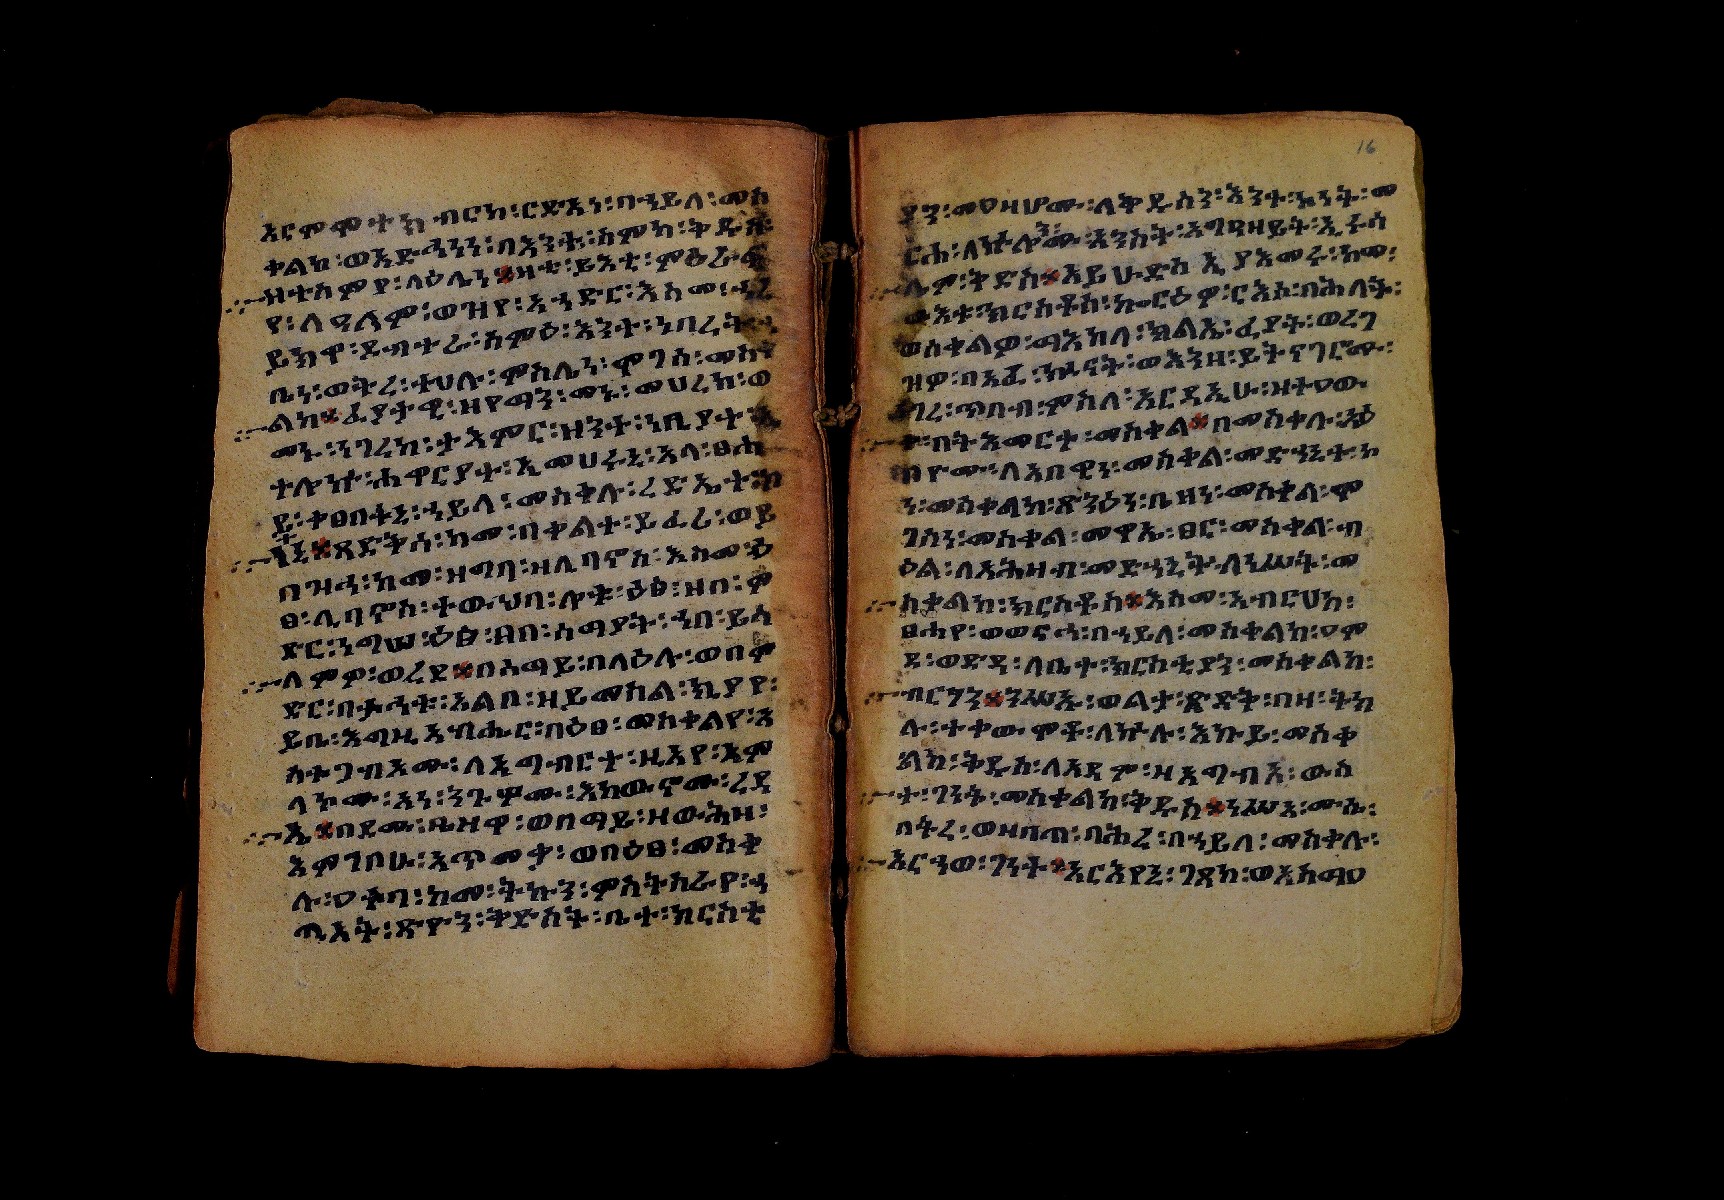 ብርክ፡ ርድእነ፡ በኃይለ፡ መስ
ቀልከ፡ ወአድኅነነ፡ በእንተ፡ ስምከ፡ ቅዱስ፡
ላዕሌነ ፨ ዛቲ፡ ይእቲ፡ ምዕራፍ
የ፡ ለዓለም፡ ወዝየ፡ አኃድር፡ እስመ፡ ኃረ
ይክዋ፡ ደብተራ፡ ስምዕ፡ እንተ፡ ነበረት፡
ቤነ፡ ወትረ፡ ተሀሉ፡ ምስሌነ፡ ሞገሰ፡ መስቀ
ልከ ፨ ፈያታዊ፡ ዘየማን፡ መኑ፡ መሀረከ፡ ወ
መኑ፡ ነገረከ፡ ታእምር፡ ዘንተ፡ ነቢያተ፡
ተሎሙ፡ ሐዋርያት፡ ኢመሀሩኒ፡ አላ፡ ፀሐ
ይ፡ ቀፀበተኒ፡ ኃይለ፡ መስቀሉ፡ ረድኤተ፡
ኒ ፨ ጻድቅሰ፡ ከመ፡ በቀልተ፡ ይፈሪ፡ ወይ
በዝኅ፡ ከመ፡ ዘግባ፡ ዘሊባኖስ፡ እስመ፡ ዕ
ፀ፡ ሊባኖስ፡ ተውህባ፡ ሎቱ፡ ዕፅ፡ ዘበ፡ ም
ድር፡ ነግሠ፡ ዕፅ፡ ዘበ፡ ሰማያት፡ ኀበ፡ ይሰ
ለምዎ፡ ወረደ ፨ በሰማይ፡ በላዕሉ፡ ወበም
ድር፡ በታሕቱ፡ አልቦ፡ ዘይመስል፡ ኪያየ፡
ይቤ፡ እግዚአብሔር፡ በዕፀ፡ መስቀልየ፡ አ
ስተጋብእሙ፡ ለእግብርተ፡ ዚአየ፡ እም
ላኮሙ፡ አነ፡ ንጉሦሙ፡ እከውኖሙ፡ ረዳ
ኤ ፨ በደሙ፡ ቤዘዋ፡ ወበማይ፡ ዘውሕዘ፡
እምገቦሁ፡ አጥመቃ፡ ወበዕፀ፡ መስቀ
ሉ፡ ዐቀባ፡ ከመ፡ ትኩን፡ ምስትስራየ፡ ኃ
ጢአት፡ ጽዮን፡ ቅድስት፡ ቤተ፡ ክርስቲ
16
ያን፡ መዐዛሆሙ፡ ለቅዱሳን፡ እንተ፡ ኵነት፡ መ
ርሐ፡ ለኵሎሙ፡ አንስት፡ እግዳዘይት፡ ኢሩሳ
ሌም፡ ቅድስ ፨ አይሁድሰ ኢያእመሩ፡ ከመ፡
ውእቱ፡ ክርስቶስ፡ ኰርዕዎ፡ ርእሰ፡ በሕለት፡
ወሰቀልዎ፡ ማእከለ፡ ክልኤ፡ ፈያት፡ ወረገ
ዝዎ፡ በእፈ፡ ኵናት፡ ወእንዘ፡ ይትናገርሙ፡
ነገረ፡ ጥበብ፡ ምስለ፡ አርዳኢሁ፡ ዘተዐው
ቀ፡ በትእመርተ፡ መስቀል ፨ በመስቀሉ፡ ንዕ
ዮሙ፡ ለአበዊነ፡ መስቀል፡ መድኃኒተ፡ ኮ
ነ፡ መስቀልከ፡ ጽንዕነ፡ ቤዘነ፡ መስቀል፡ ሞ
ገስነ፡ መስቀል፡ መዋኤ፡ ፀር፡ መስቀል፡ ብ
ዕል፡ ለአሕዛብ፡ መድኃኒት ለነሥት፡ መ
ስቀልከ፡ ክርስቶስ ፨ እስመ፡ አብርሀከ፡
ፀሐየ፡ ወወርኅ፡ በኃይለ፡ መስቀልከ፡ ዐም
ደ፡ ወድዳ፡ ለቤተ፡ ክርስቲያን፡ መስቀልከ፡
ብርሃን ፨ ንሥኡ፡ ወልታ፡ ጽድቅ፡ በዛ፡ ትክ
ሉ፡ ተቀውሞቶ፡ ለኵሉ፡ እኩይ፡ መስቀ
ልከ፡ ቅዱስ፡ ለአዳም፡ ዘአግብአ፡ ውስ
ተ፡ ገነት፡ መስቀልከ፡ ቅዱስ ፨ ነሥአ፡ ሙሴ፡
በትረ፡ ወዘበጠ፡ ባሕረ፡ በኃይለ፡ መስቀሉ፡
አርኃወ፡ ገነተ ፨ አርእየኒ፡ ገጸከ፡ ወአስማዐ